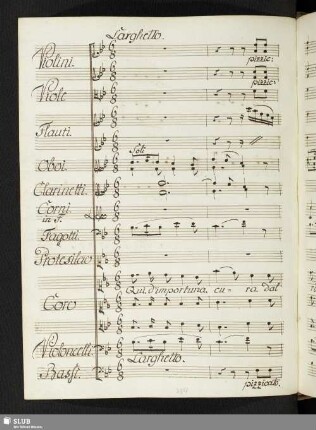 Larghetto.
Violini.
pizzic:
pizzic:
Viole
Flauti.
Soli
Oboi.
Clarinetti.
Corni.
in F.
Fagotti.
Protesilao
Qui d'importuna cu - ra dal
Coro
Violoncelli.
Larghetto.
Bassi.
pizzicato.
SLUB